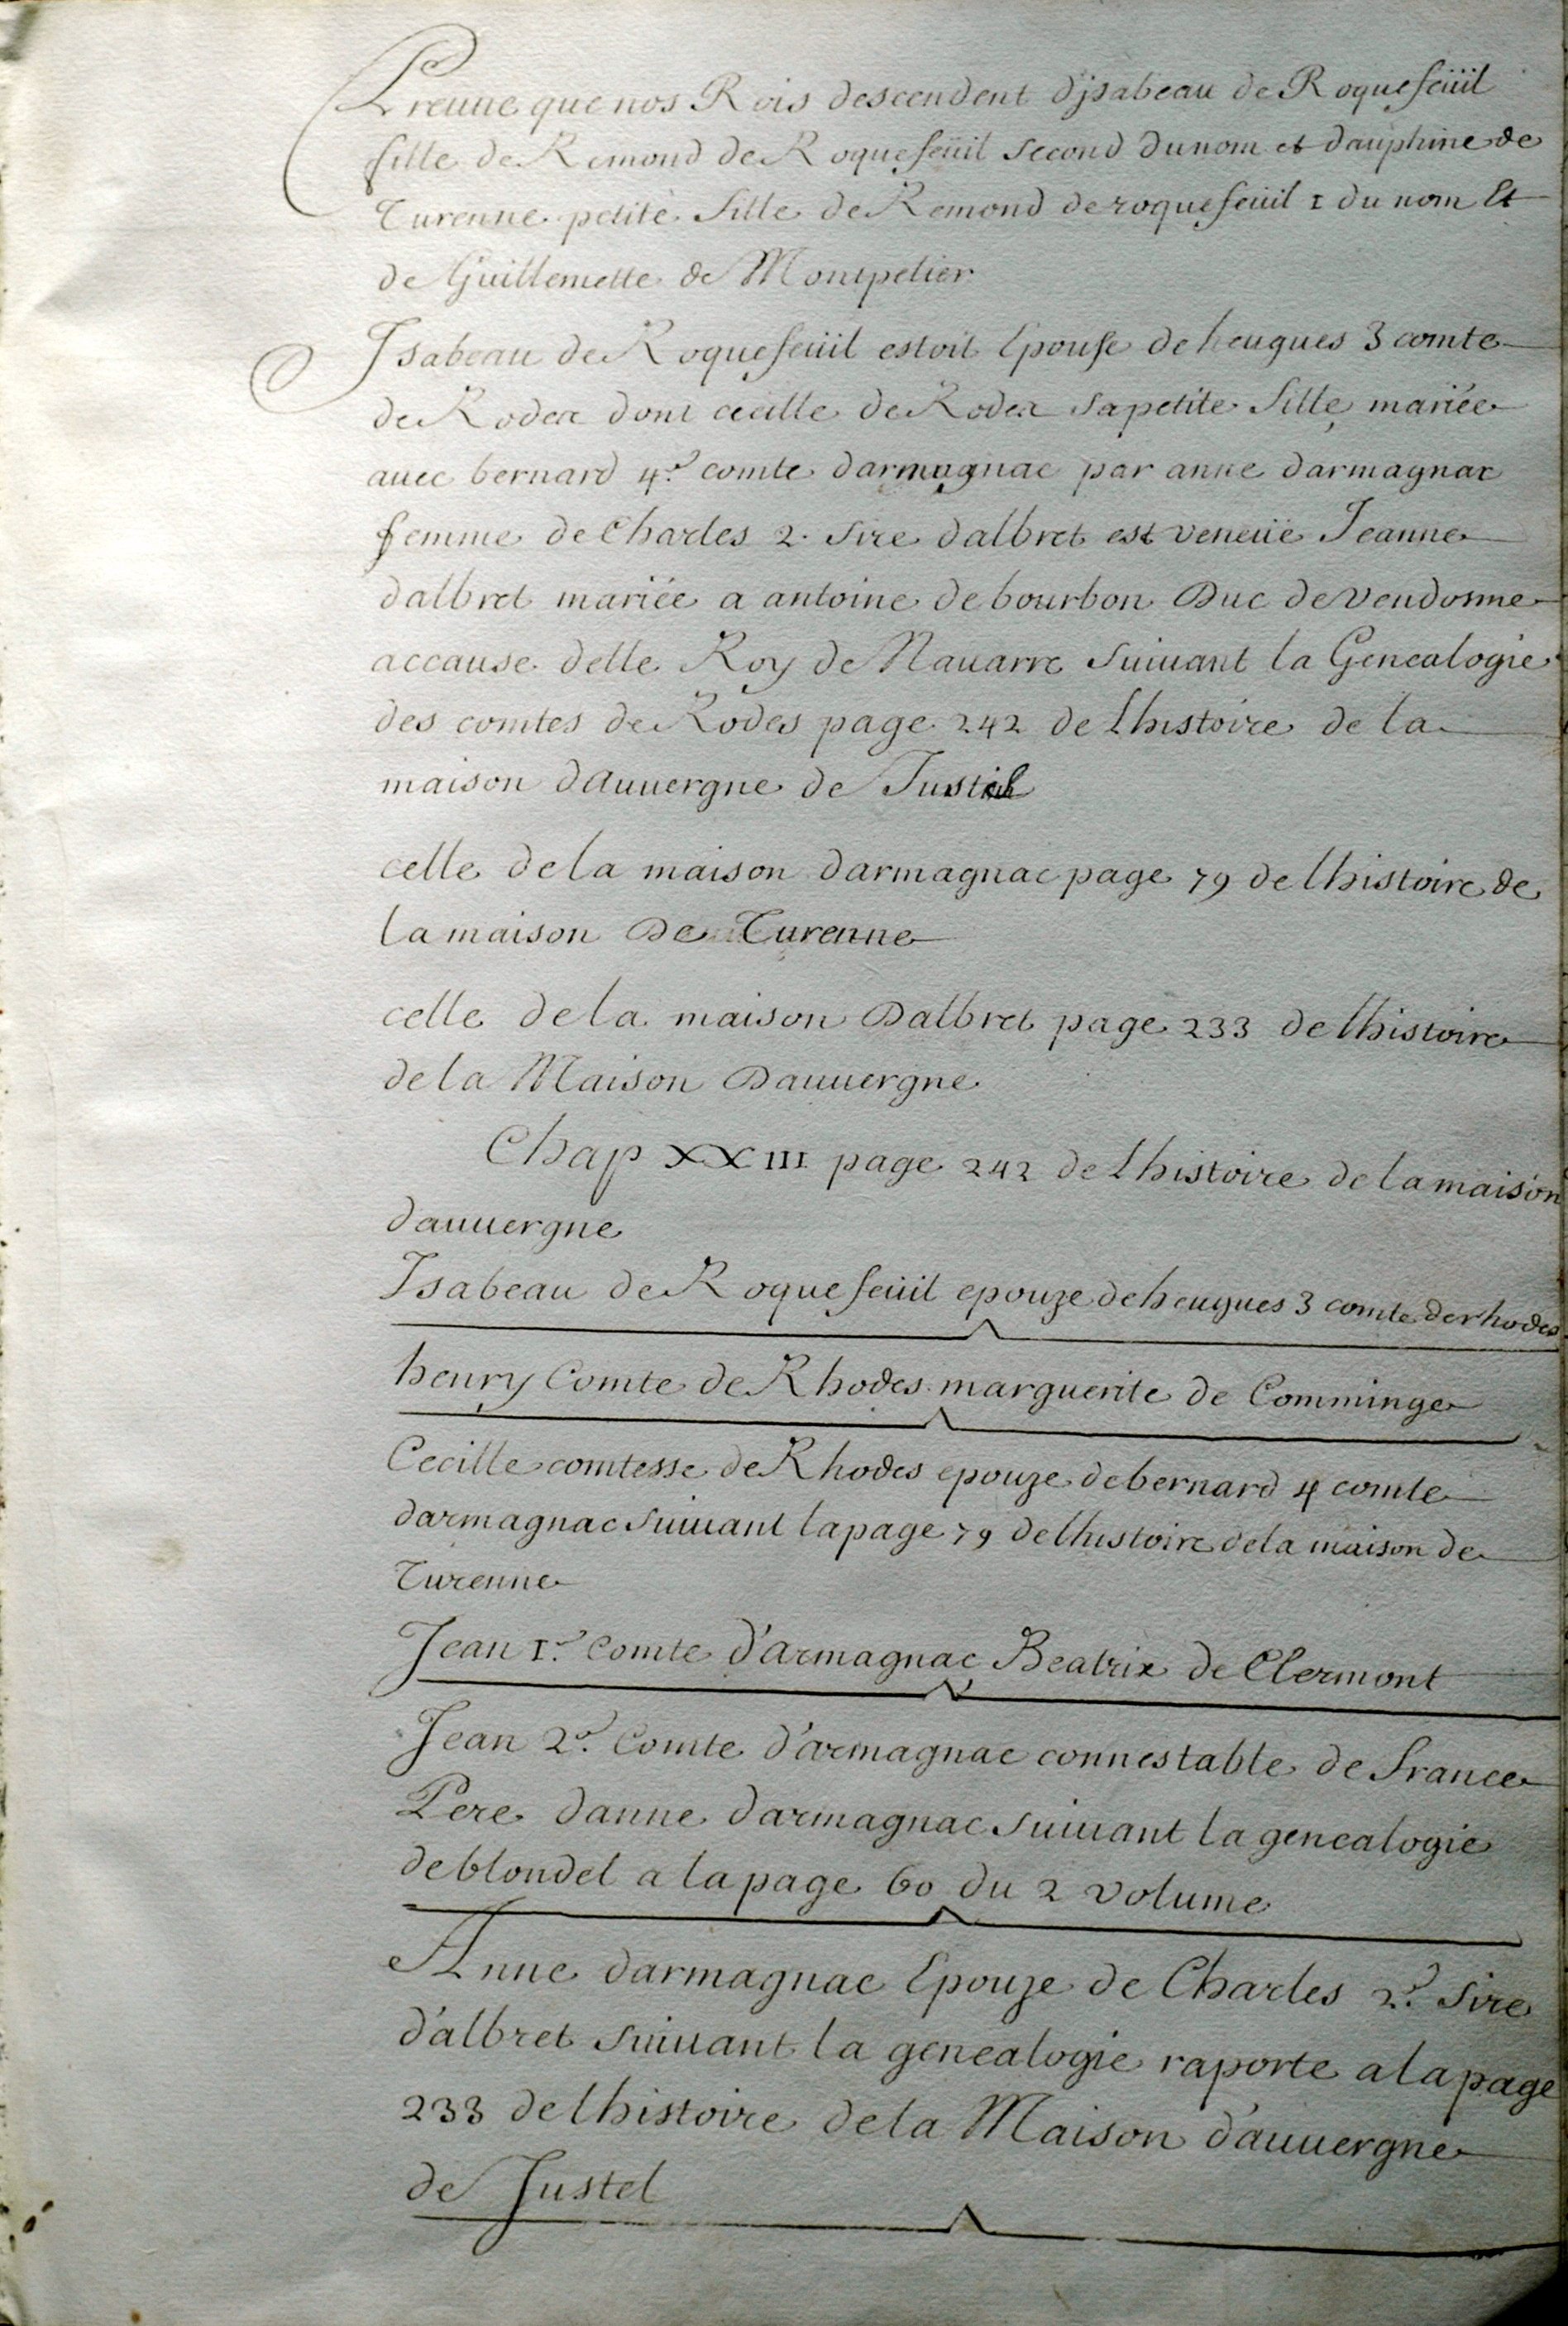 Preuue que nos Rois descendent djsabeau de Roquefeüil
fille de Remond de Roquefeüil second du nom et dauphine de
Turenne petite fille de Remond de roquefeüil I du nom Et
de Guillemette de Montpelier
Isabeau de Roquefeüil estoit Epouse de heugues 3 comte
de Rodez dont cecille de Rodez sa petite fille mariée
auec bernard 4.e comte darmagnac par anne darmagnac
femme de Charles 2. sire dalbret est veneüe Jeanne
dalbret mariée a antoine de bourbon Duc de vendosme
accause delle Roy de Nauarre suiuant la Genealogie
des comtes de Rodes page 242 de Lhistoire de la
maison dauuergne de Justel
celle de la maison darmagnac page 79 de lhistoire de
la maison De Turenne
celle de la maison Dalbret page 233 de lhistoire
de la Maison Dauuergne
Chap XXIII page 242 de Lhistoire de la maison
dauuergne
Isabeau de Roquefeüil epouze de heugues 3 comte de rhodes
henry Comte de Rhodes marguerite de Comminge
Cecille comtesse de Rhodes epouze de bernard 4 comte
darmagnac suiuant la page 79 de lhistoire de la maison de
Turenne
Jean I.er Comte d'armagnac Beatrix de Clermont
Jean 2.e Comte d'armagnac connestable de france
Pere danne darmagnac suiuant la genealogie
de blondel a la page 60 du 2 volume
Anne darmagnac Epouze de Charles 2.e sire
d'albret suiuant la genealogie raporte a la page
233 de lhistoire de la Maison d'auuergne
de Justel